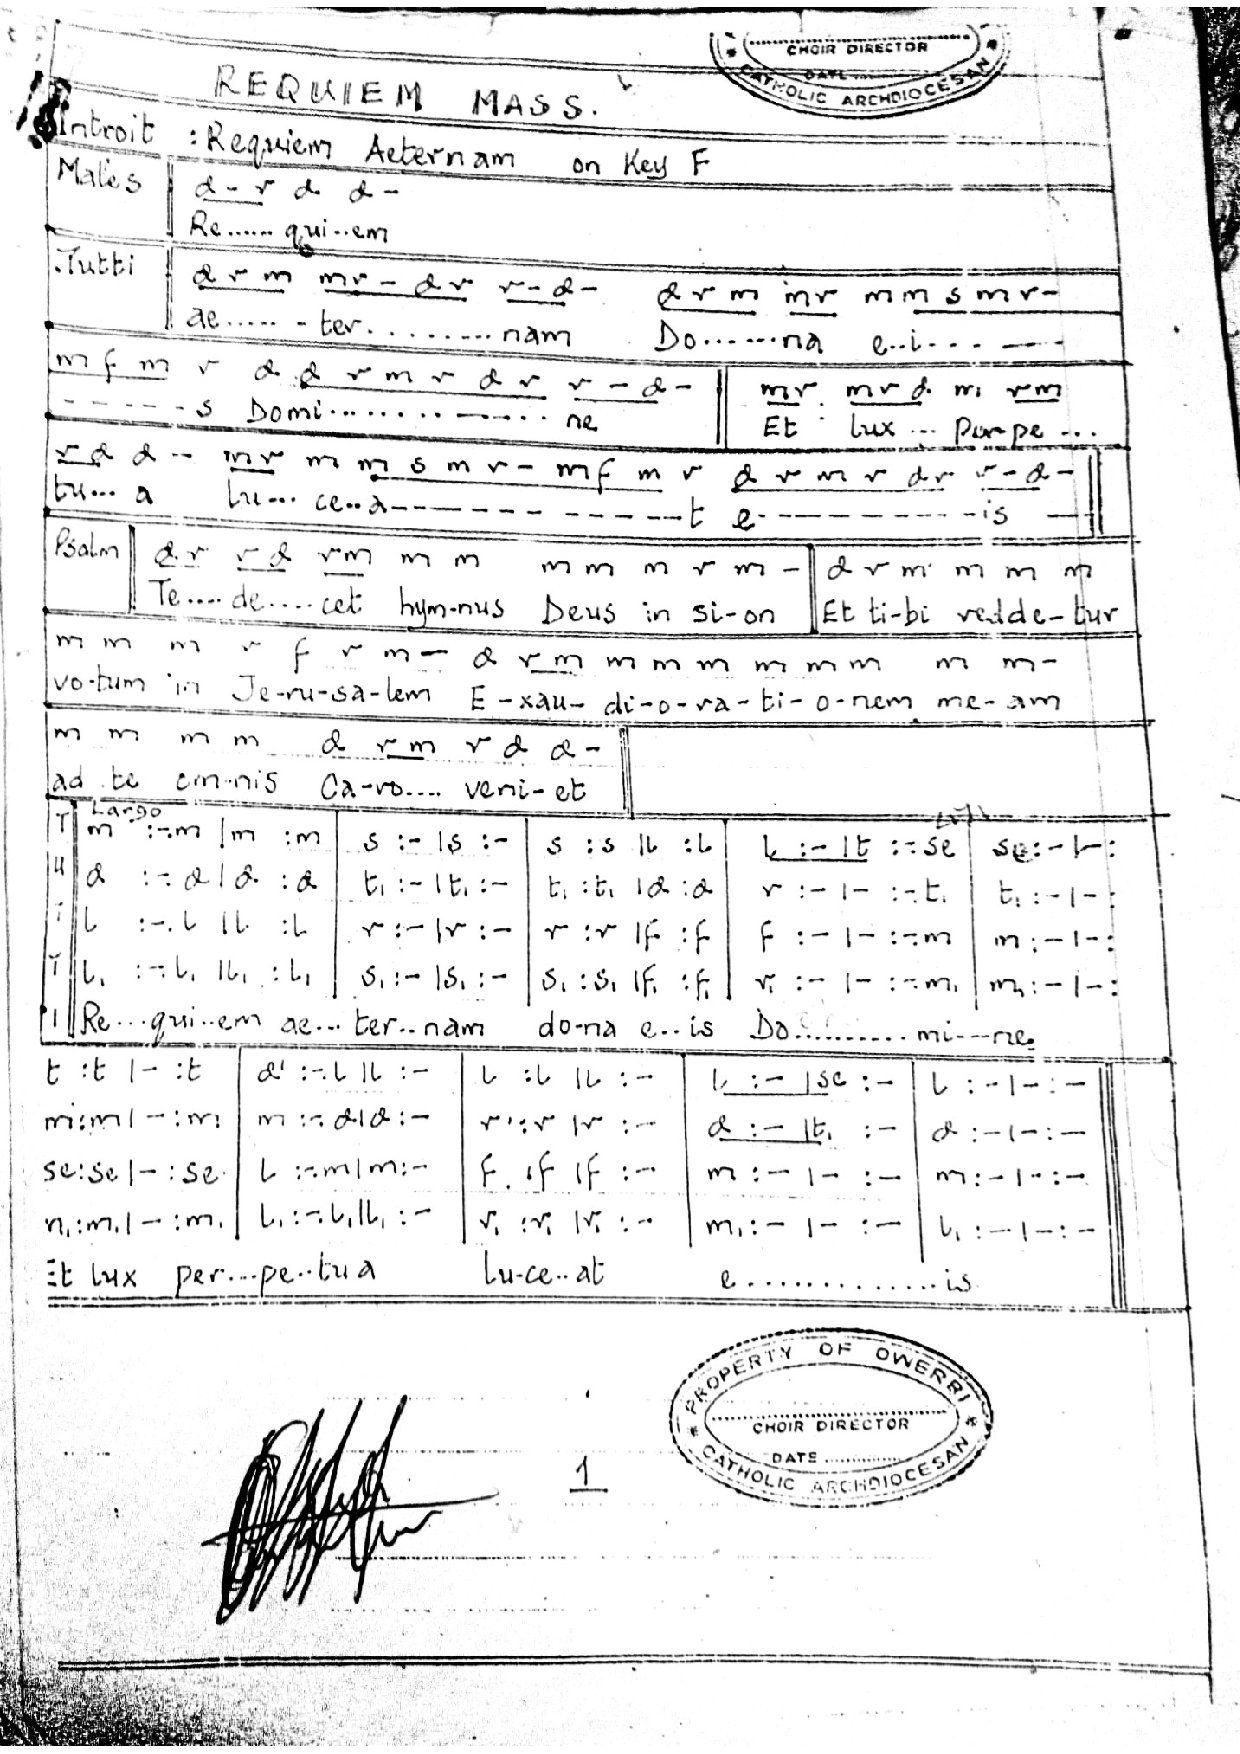 CHOIR DIRECTOR
DATE ............
CATHOLIC ARCHDIOCESAN
REQUIEM MASS.
Introit : Requiem Aeternam on Key F
Males d - r d d -
Re...... qui..em
Tutti d r m m r - d r r - d - d r m m r m m s m r -
ae...... - ter. ........ nam Do.......na e..i. . . . -----
m f m r d d r m r d r r - d - m r m r d m r m
- - - - - s Domi................. ne Et lux ... Per-pe ...
r d d - m r m m s m r - m f m r d r m r d r r - d -
tu... a lu... ce..a- - - - - - - - - - - - -t e- - - - - - - - - -is
Psalm d r r d r m m m m m m r m - d r m m m m
Te.....de.....cet hym-nus Deus in si-on Et ti-bi redde-tur
m m m r f r m - d r m m m m m m m m m -
vo-tum in Je-ru-sa-lem E-xau-di-o-ra-ti-o-nem me-am
m m m m d r m r d d -
ad te om-nis Ca-ro.... veni-et
TUTTI
Largo
m :-.m | m :m | s :- | s :- | s :s | l :l | l :- | t :-.se | se :- | - :
d :-.d | d :d | t₁ :- | t₁ :- | t₁ :t₁ | d :d | r :- | - :-.t₁ | t₁ :- | - :
l :-.l | l :l | r :- | r :- | r :r | f :f | f :- | - :-.m | m :- | - :
l₁ :-.l₁ | l₁ :l₁ | s₁ :- | s₁ :- | s₁ :s₁ | f₁ :f₁ | r₁ :- | - :-.m₁ | m₁ :- | - :
Re...qui..em ae...ter..nam do-na e..is Do........... mi---ne.
t :t | - :t | d' :-.l | l :- | l :l | l :- | l :- | se :- | l :- | - :-
m :m | - :m | m :-.d | d :- | r :r | r :- | d :- | t₁ :- | d :- | - :-
se :se | - :se | l :-.m | m :- | f :f | f :- | m :- | - :- | m :- | - :-
m₁ :m₁ | - :m₁ | l₁ :-.l₁ | l₁ :- | r₁ :r₁ | r₁ :- | m₁ :- | - :- | l₁ :- | - :-
Et lux per...pe-tua lu-ce..at e ............... is
PROPERTY OF OWERRI
CHOIR DIRECTOR
DATE ............
CATHOLIC ARCHDIOCESAN
1